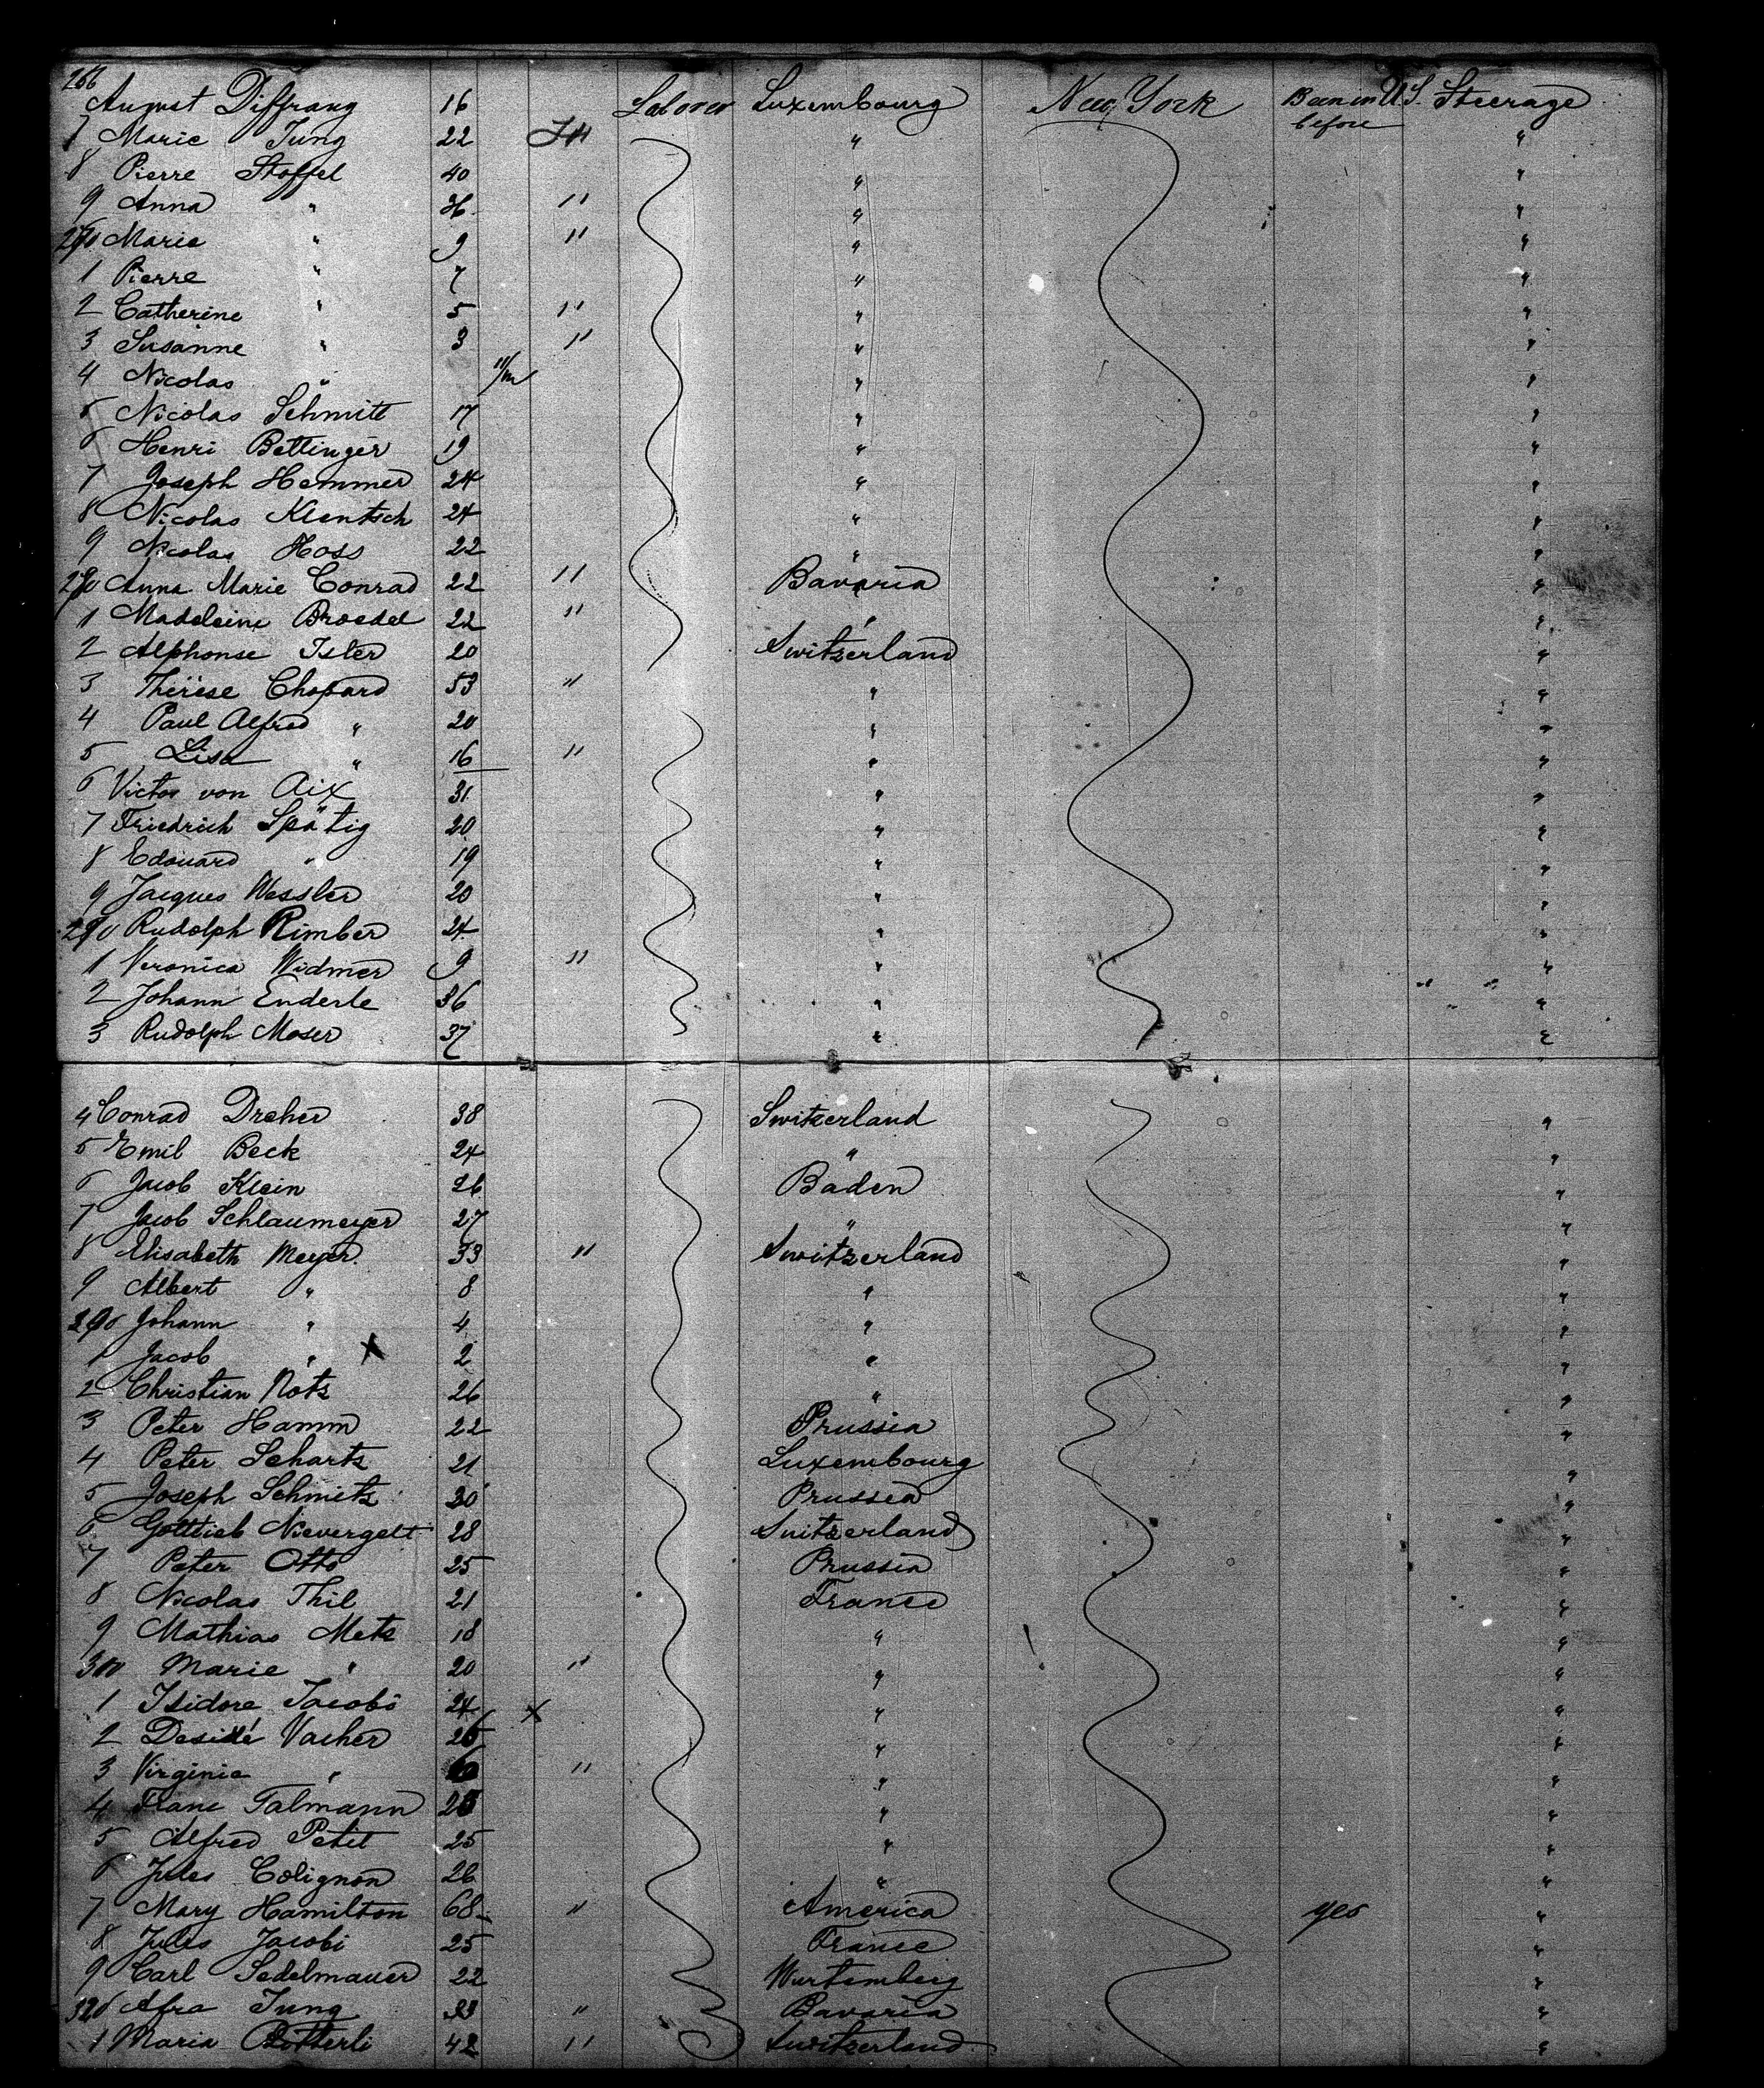 266
August Diffrang 16 Laborer Luxembourg New York Been in U.S. before Steerage
7 Marie Jung 22 " "
8 Pierre Stoffel 40 " "
9 Anna " 36 " " "
270 Marie " 9 " " "
1 Pierre " 7 " "
2 Catherine " 5 " " "
3 Susanne " 3 " " "
4 Nicolas " 11/m " "
5 Nicolas Schmitt 17 " "
6 Henri Bettinger 19 " "
7 Joseph Hemmer 24 " "
8 Nicolas Klentsch 24 " "
9 Nicolas Hoss 22 " "
280 Anna Marie Conrad 22 " Bavaria "
1 Madeleine Broedel 22 " " "
2 Alphonse Isler 20 Switzerland "
3 Therese Chopard 53 " " "
4 Paul Alfred " 20 " "
5 Lisa " 16 " " "
6 Victor von Aix 31 " "
7 Friedrich Spätig 20 " "
8 Edouard " 19 " "
9 Jacques Wessler 20 " "
290 Rudolph Rimber 24 " "
1 Veronica Widmer 9 " " "
2 Johann Enderle 36 " "
3 Rudolph Moser 37 " "
4 Conrad Dreher 38 Switzerland "
5 Emil Beck 24 " "
6 Jacob Klein 26 Baden "
7 Jacob Schlaumeyer 27 " "
8 Elisabeth Meyer 33 " Switzerland "
9 Albert " 8 " "
290 Johann " 4 " "
1 Jacob " X 2 " "
2 Christian Notz 26 " "
3 Peter Hamm 22 Prussia "
4 Peter Schartz 21 Luxembourg "
5 Joseph Schmitz 30 Prussia "
6 Gottlieb Nievergelt 28 Switzerland "
7 Peter Otto 25 Prussia "
8 Nicolas Thil 21 France "
9 Mathias Metz 18 " "
300 Marie " 20 " " "
1 Isidore Jacobi 24 X " "
2 Desiré Vacher 26 " "
3 Virginie " " " "
4 Franc Talmann 25 " "
5 Alfred Petit 25 " "
6 Jules Colignon 26 " "
7 Mary Hamilton 68 " America yes "
8 Jules Jacobi 25 France "
9 Carl Sedelmauer 22 Wurtemberg "
Afra Jung " Bavaria "
1 Maria 42 " Switzerland "